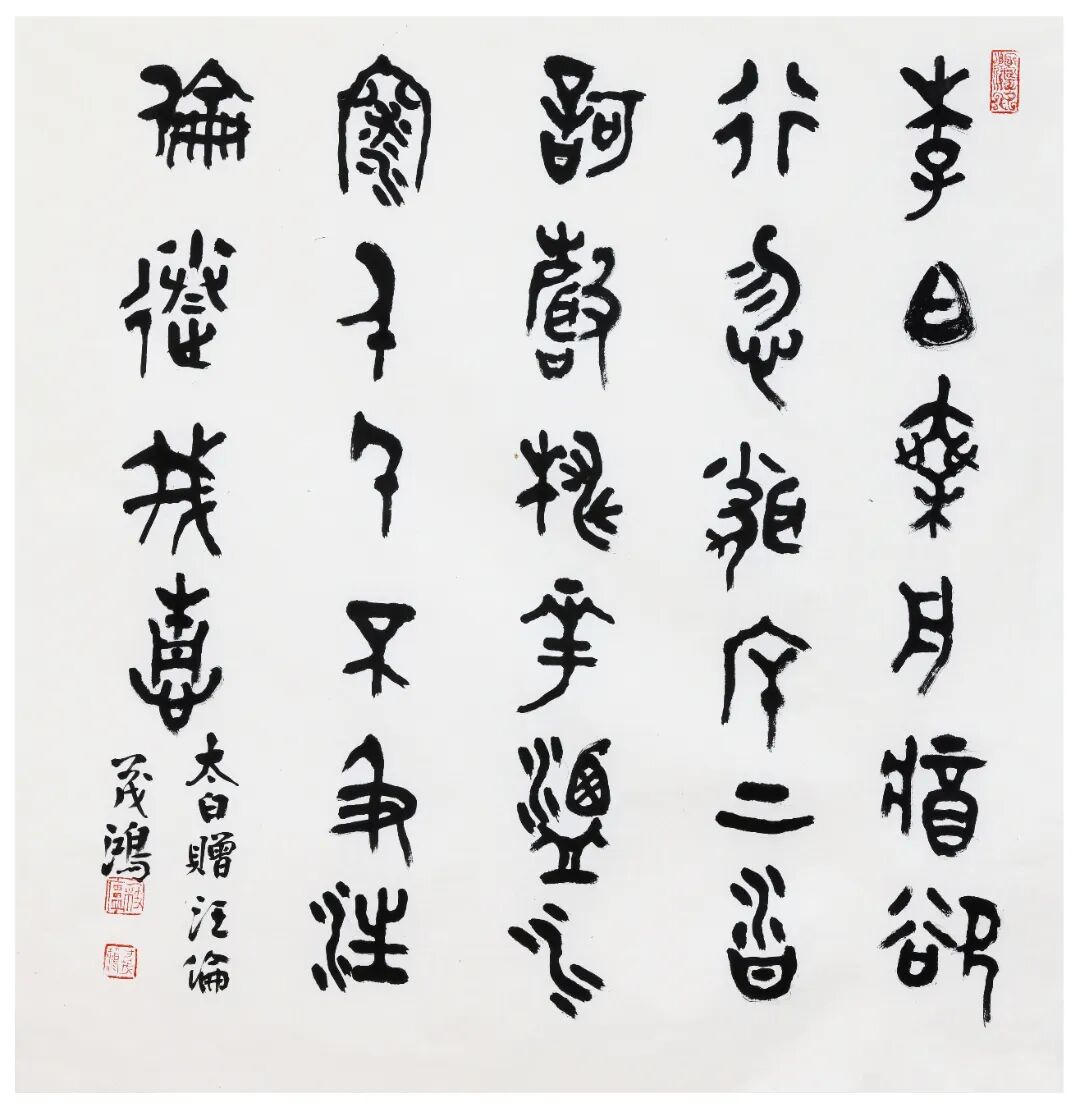 李白乘舟將欲
行忽聞岸上踏
歌聲桃花潭水
深千尺不及汪
倫送我情
太白贈汪倫
茂鴻